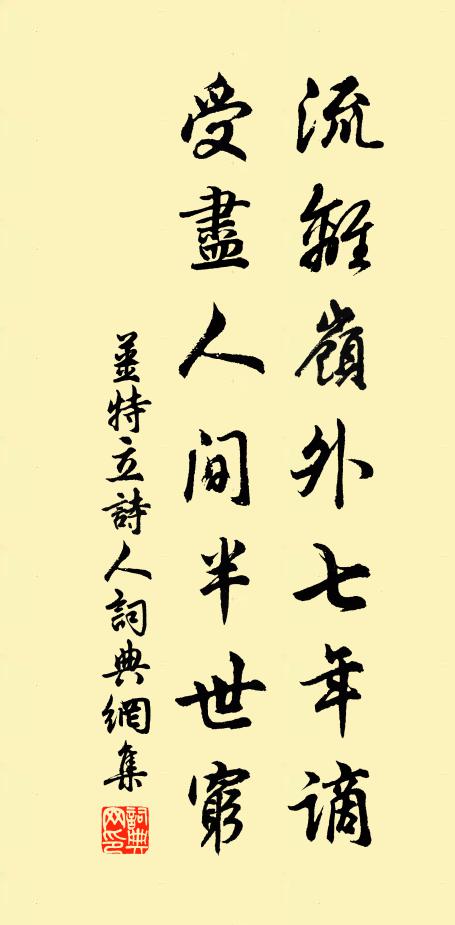 流離嶺外七年謫
受盡人间半世窮
薑特立詩人詞典網集
詞典网印